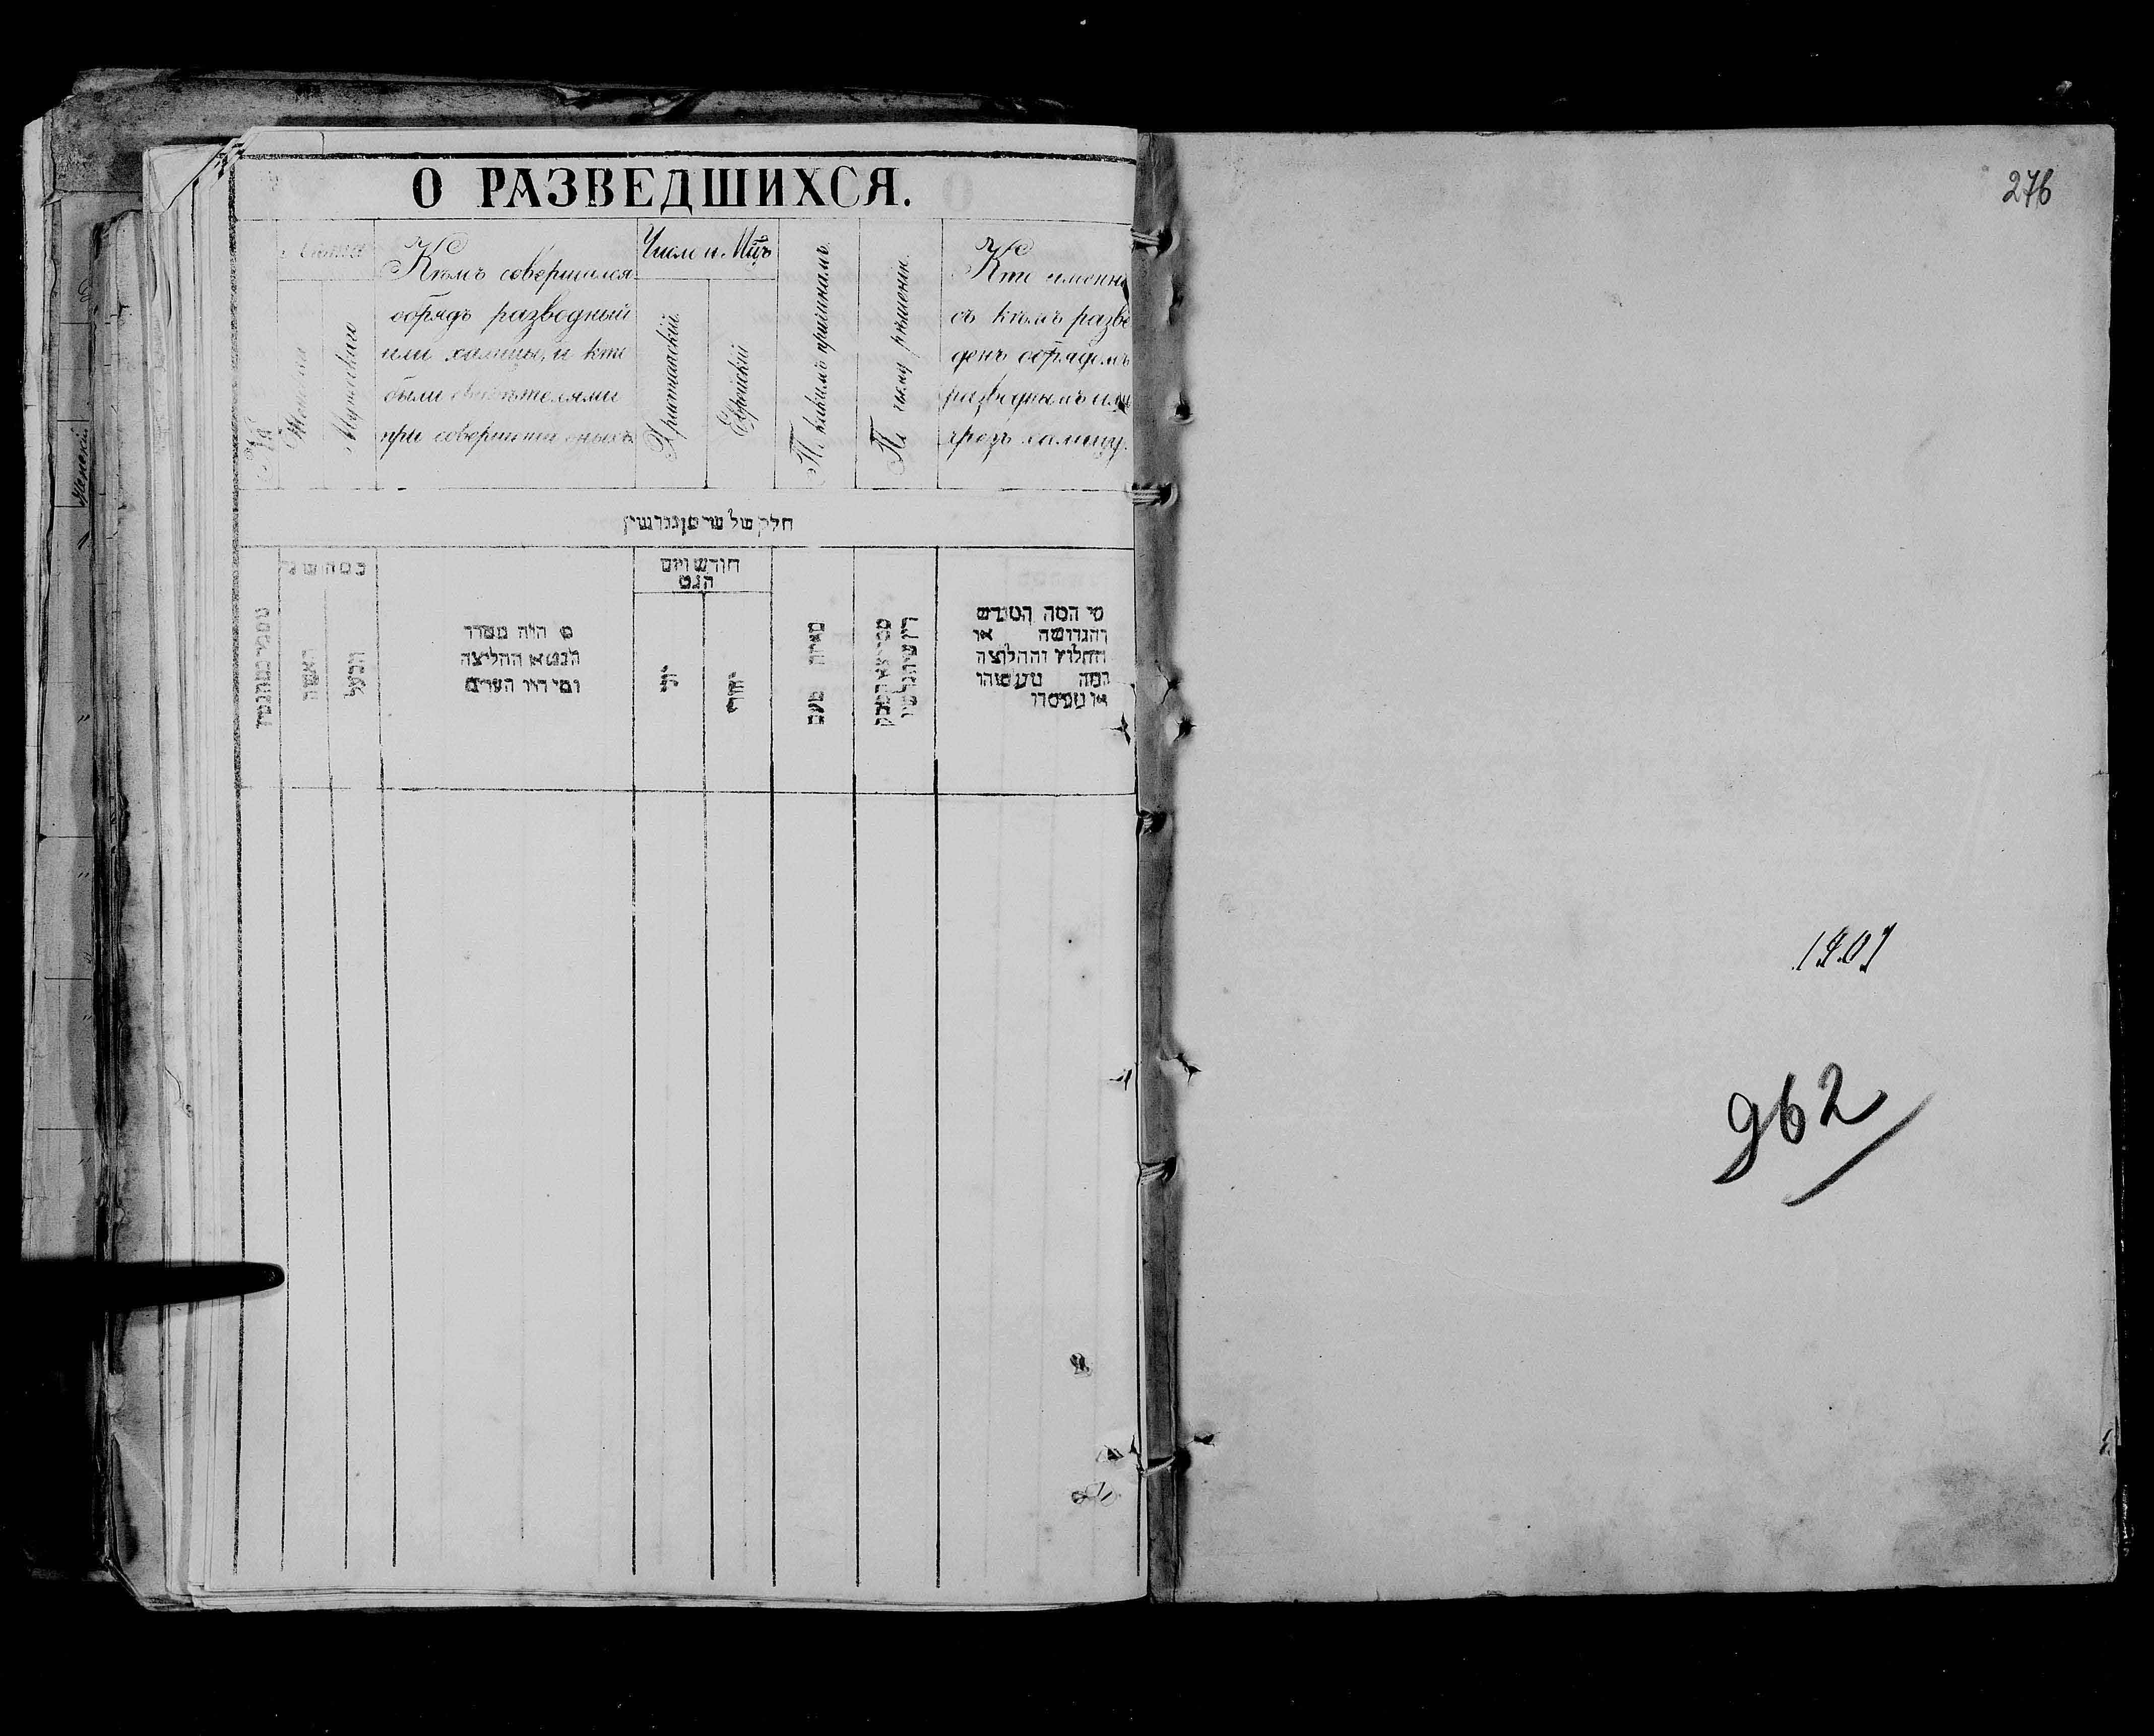 О РАЗВЕДШИХСЯ.
Лѣта
Женска
Мужескаго
Кѣмъ совершался
обрядъ разводный
или халицы, и кто
были свидѣтелями
при совершенiи оныхъ
Число и Мцъ
Христiанскiй
Еврейскiй
По какимъ причинамъ
По чьему рѣшенiю
Кто именно
съ кѣмъ разве
денъ обрядомъ
разводнымъ или
чрезъ халицу.
חודש ויום
הגט
האשה
הבעל
מי היה מסדר
הגט או החליצה
ומי היו העדים
יהודי
מאיזה טעם
מי המה המגרש
והגרושה או
החלוץ והחלוצה
276
1907
962
Женскiй